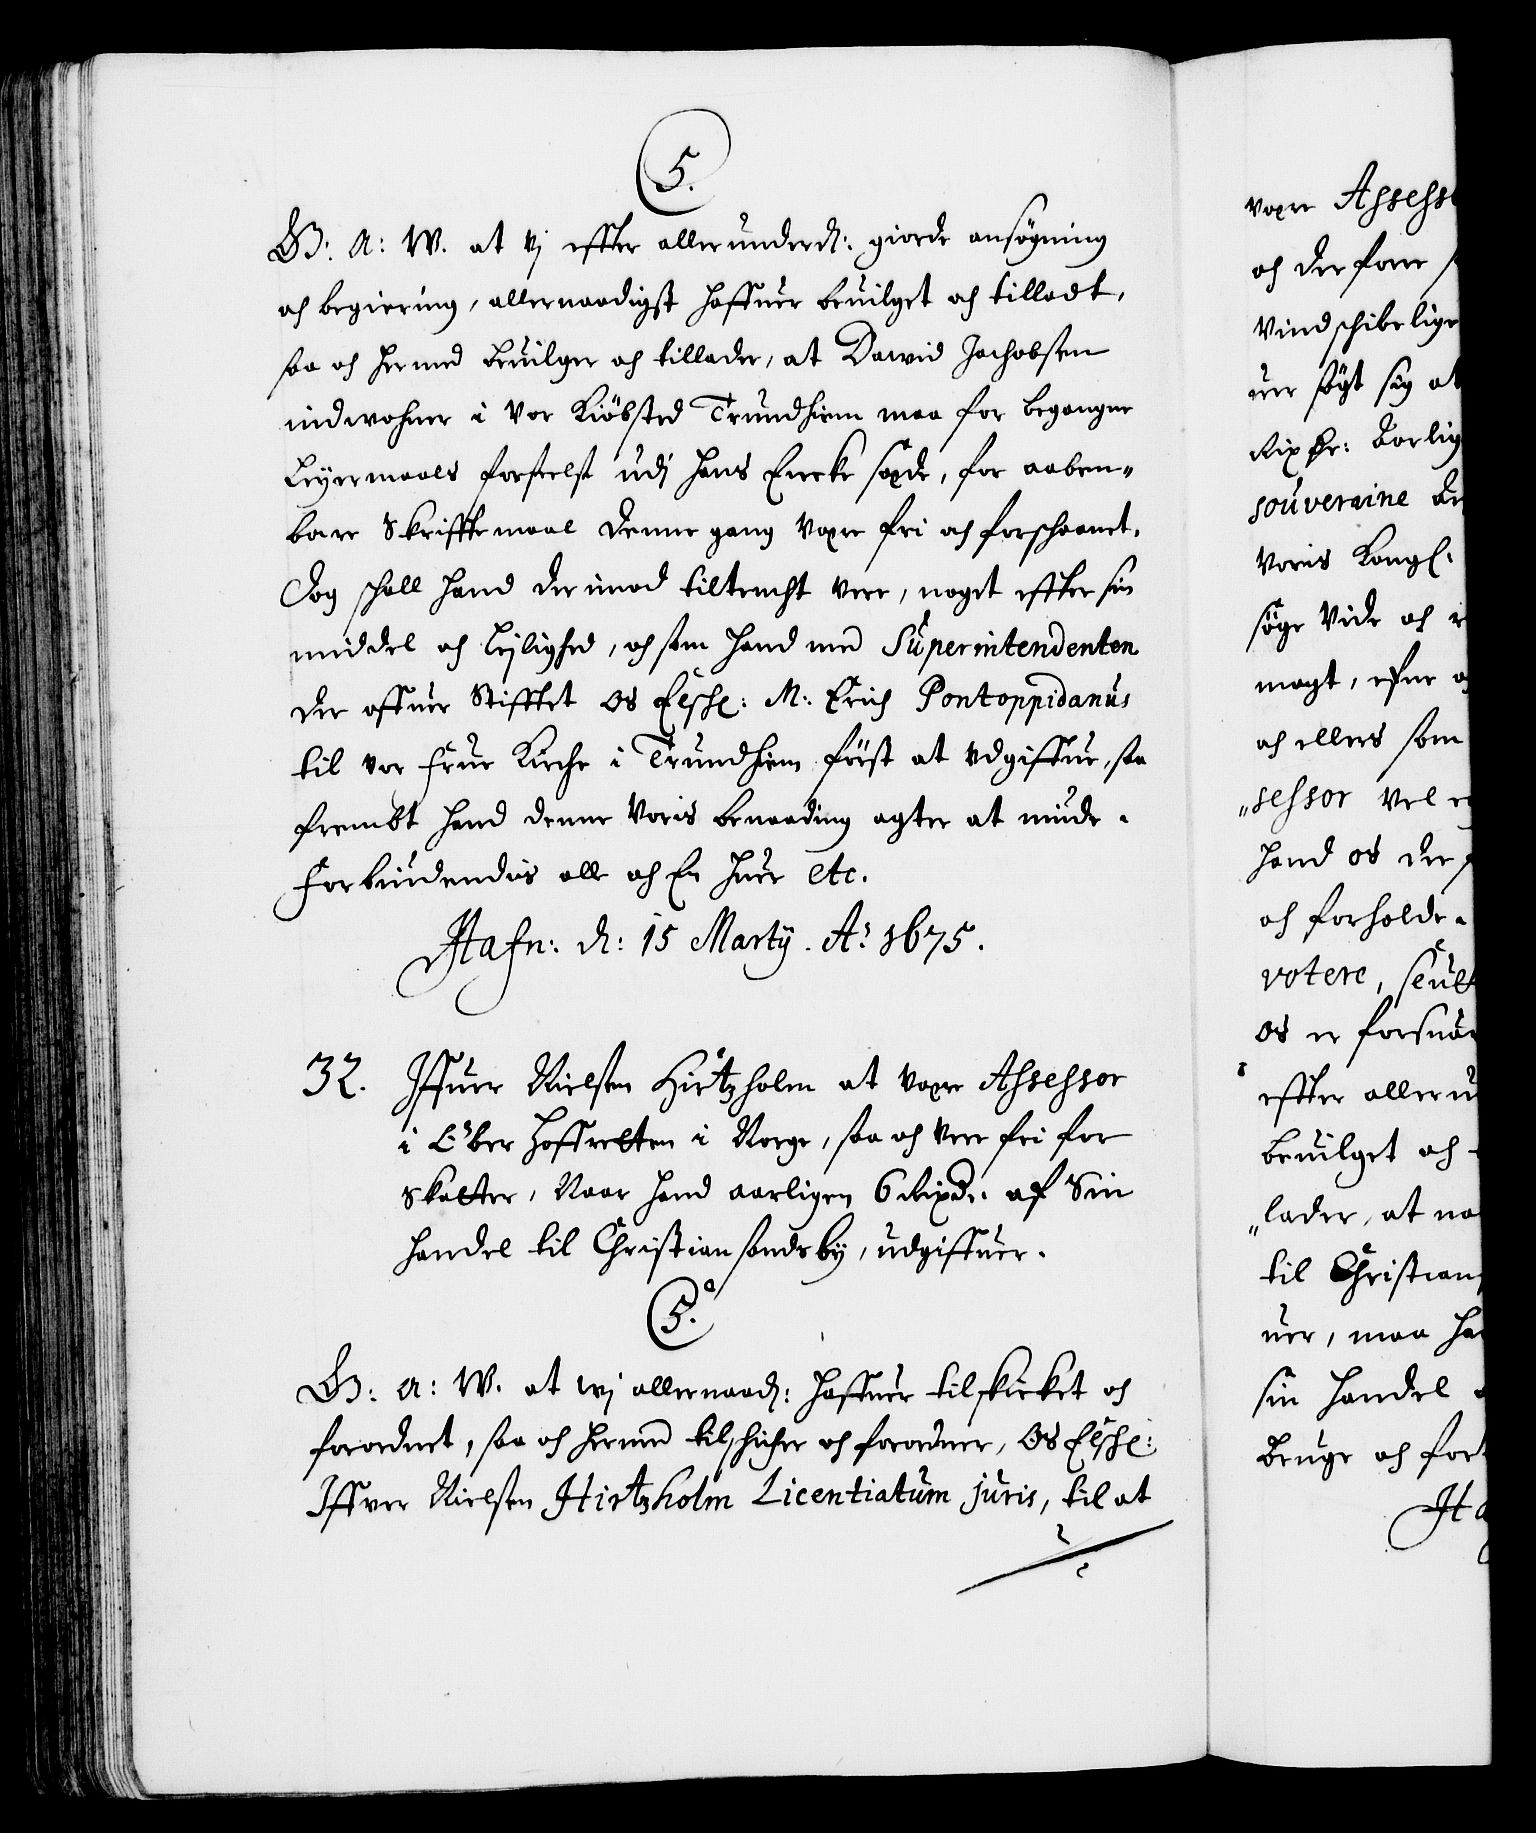 5.
G: A: W. at Vj effter allerunderd: giorde ansögning
och begiering, allernaadigst haffuer beuilget och tilladt,
saa och hermed beuilger och tillader, at Dawid Jachobsen
indwohner i Vor Kiöbsted Trundhiem maa for begangne
Leyermaals forseelse udj hans Encke sæde, for aaben„
bare Skrifftemaal denne gang være fri och forschaanet,
Dog schall hand der imod tiltencht vere, noget effter sin
middel och Lejlighed, och som hand med Superintendenten
der offuer Stifftet os Elschl: M: Erich Pontoppidanus
til vor Frue Kirche i Trundhiem först at udgiffue, saa
frembt hand denne Voris benaading agter at niude.
Forbiudendis alle och En huer etc.
Hafn: d: 15 Martÿ. A: 1675.
32. Iffuer Nielsen Hirtzholm at være Assessor
i Ober Hoffretten i Norge, saa och vere fri for
Skatter, Naar hand aarligen 6 Rixdr. af Sin
handel til Christiansandsbÿ, udgiffuer.
5.
G: A: W. at wj allernaad: haffuer tilskicket och
forordnet, saa och hermed tilschicher och forordner, Os Elschl:
Iffver Nielsen Hirtzholm Licentiatum juris, til at
være Assess
och der fore
Vindschibelige
uer søgt sig at
Rixdr: aarlig
souveraine
Voris Kongl:
søge Vide och
magt, efne
och ellers som
„sessor Vel
hand os der
och forholde.
votere,
os er
effter alleru
beuilget och
„lader, at na
til Christian
uer, maa ha
sin handel
bruge och fort
Ha